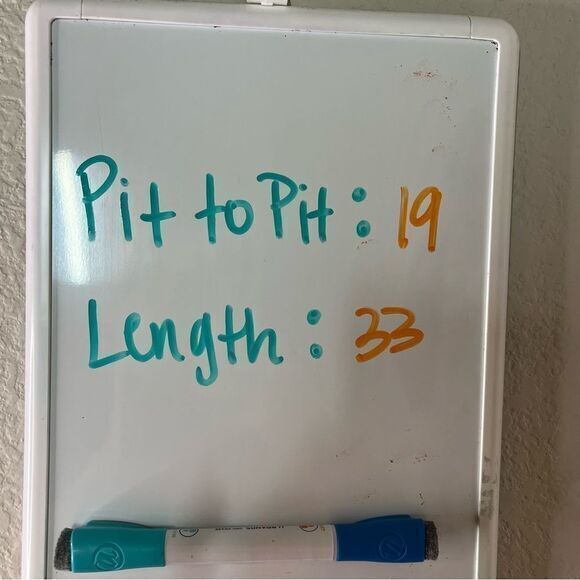 Pit to Pit: 19
Length: 33
U BRANDS